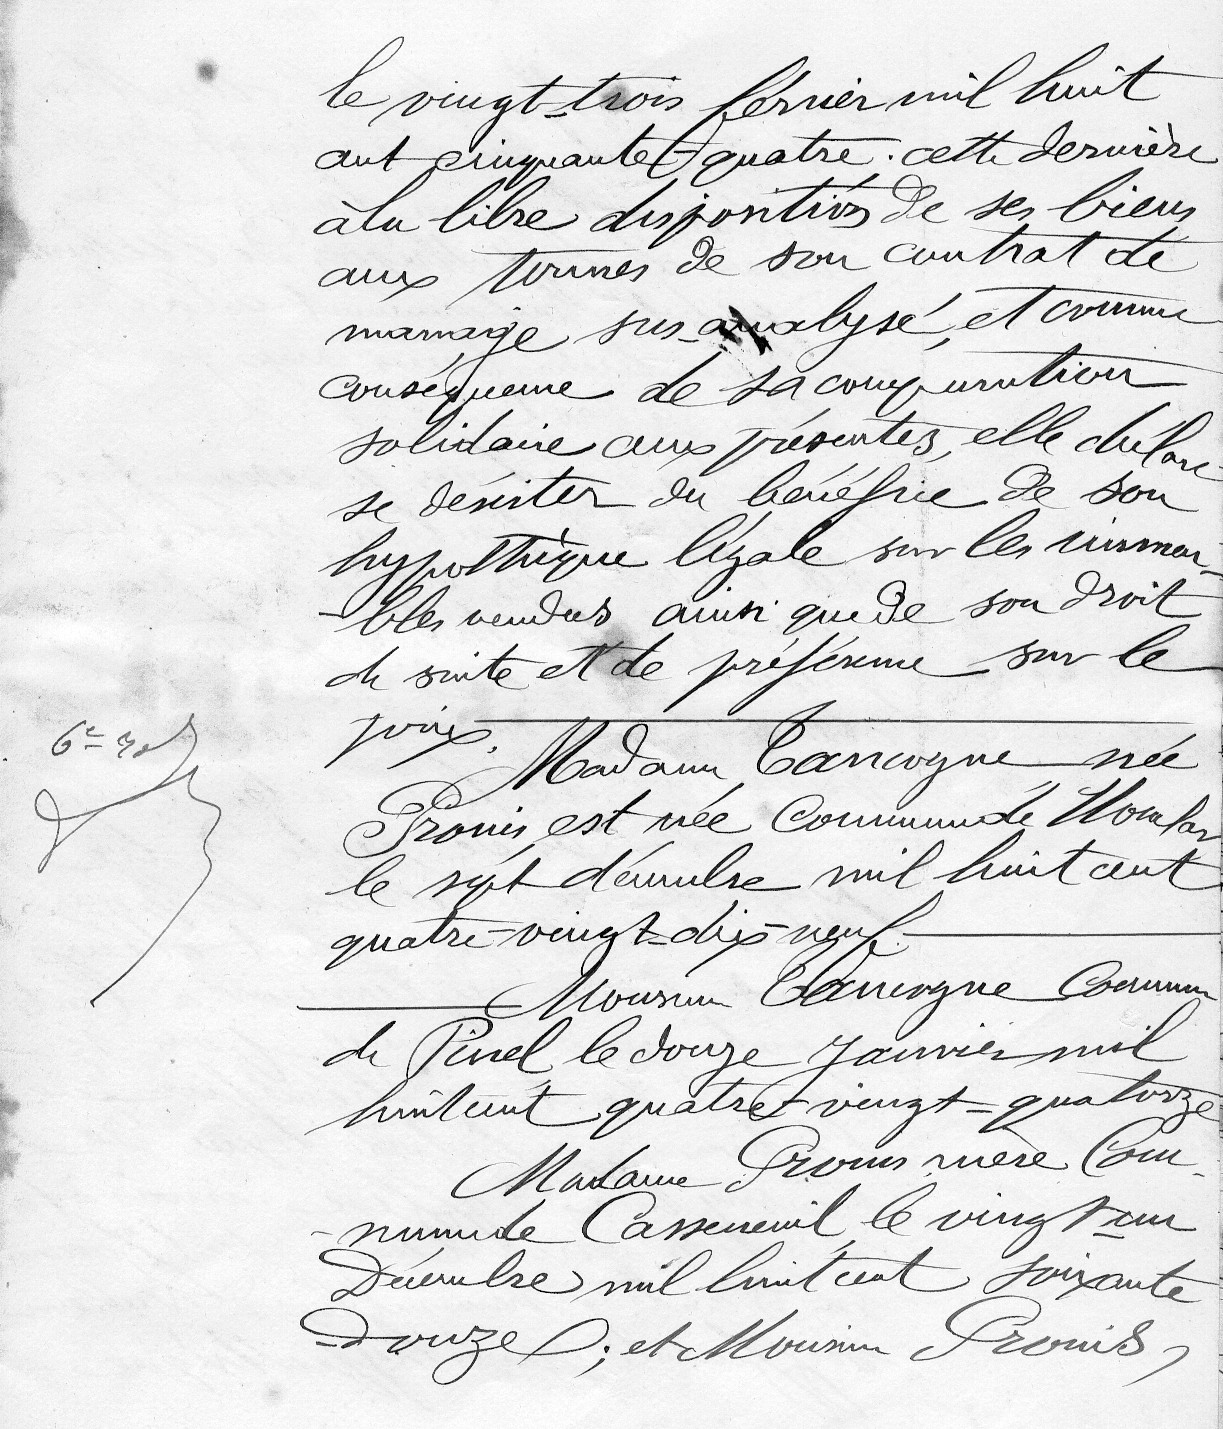 le vingt-trois février mil huit
cent cinquante-quatre. cette dernière
à la libre disposition de ses biens
aux termes de son contrat de
mariage sus-analysé, et comme
conséquence de sa comparution
solidaire aux présentes, elle déclare
se désister du bénéfice de son
hypothèque légale sur les immeu-
-bles vendus ainsi que de son droit
de suite et de préférence sur le
prix.
6e rôle
Madame Tancogne née
Pronis est née commune de
le sept décembre mil huit cent
quatre-vingt-dix-neuf.
Monsieur Tancogne Commune
de Pinel le douze Janvier mil
huit cent quatre-vingt-quatorze
Madame Pronis mère Com-
-mune de Casseneuil le vingt-un
Décembre mil huit cent soixante
-douze ; et Monsieur Pronis,